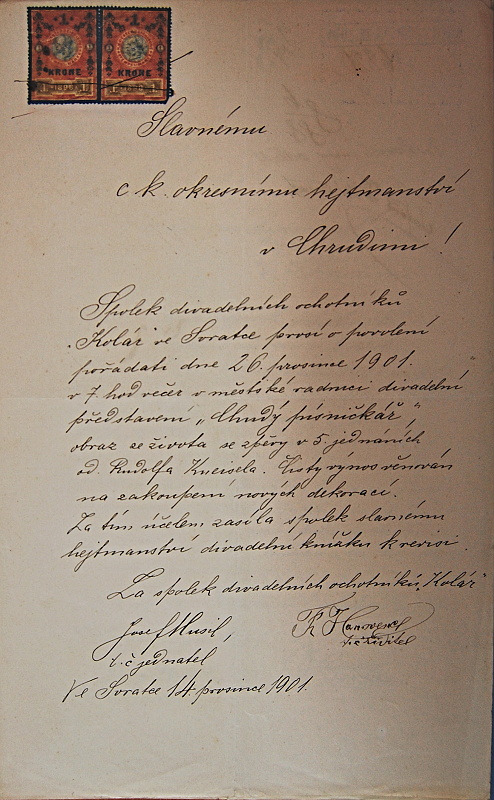 1 1
KRONE KRONE
1 1898 1 1 1898 1
Slavnému
c k. okresnímu hejtmanství
v Chrudimi!
Spolek divadelních ochotníků
„Kolár" ve Svratce prosí o povolení
pořádati dne 26. prosince 1901.
v 7. hod večer v městské radnici divadelní
představení „Chudý písničkář",
obraz ze života se zpěvy v 5. jednáních
od Rudolfa Kneisela. Čistý výnos věnován
na zakoupení nových dekorací.
Za tím účelem zasílá spolek slavnému
hejtmanství divadelní knížku k revisi.
Za spolek divadelních ochotníků „Kolár"
Josef Musil,
t. č jednatel,
t. č ředitel
Ve Svratce 14. prosince 1901.